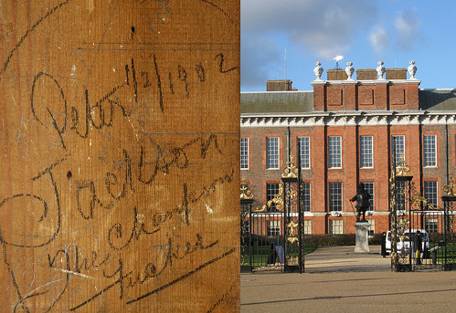 Peter 1/2/1902
Jackson
The Champion
Fucker